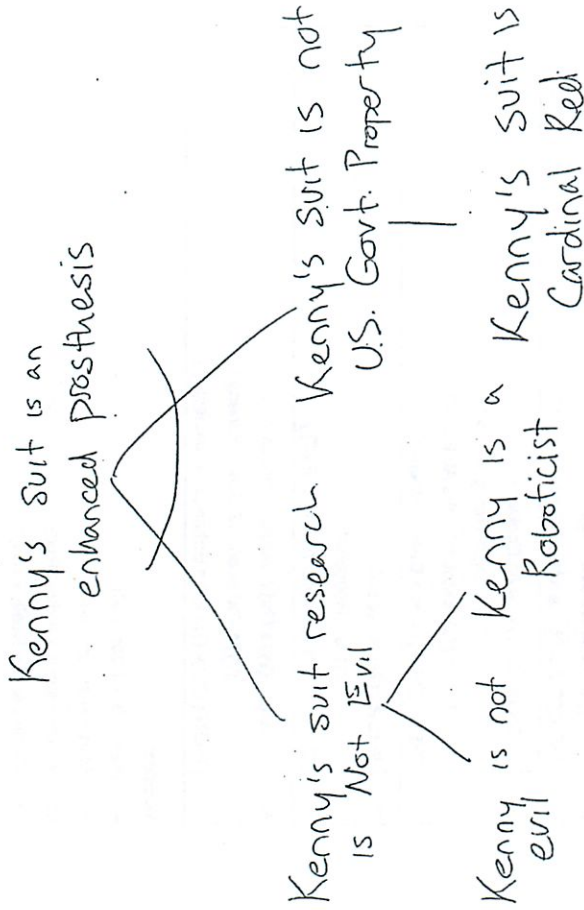 Kenny's suit is an
enhanced prosthesis
Kenny's suit research
is Not Evil
Kenny's suit is not
U.S. Govt. Property
Kenny is not
evil
Kenny is a
Roboticist
Kenny's suit is
Cardinal Red